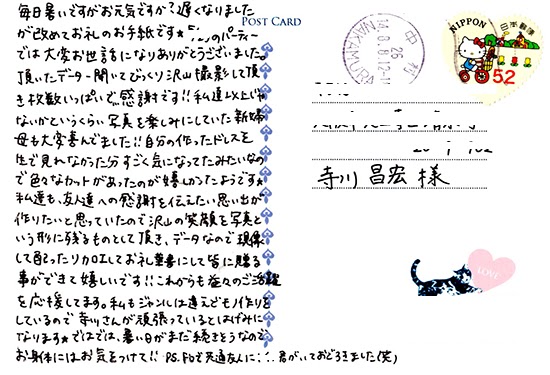 毎日暑いですがお元気ですか？遅くなりました
が改めてお礼のお手紙です★ のパーティー
では大変お世話になりありがとうございました。
頂いたデーター開いてびっくり沢山撮影して頂
き枚数いっぱいで感謝です!!私達以上じゃ
ないかというくらい写真を楽しみにしていた新婦
母も大変喜んでました!!自分の作ったドレスを
生で見れなかった分すごく気になってたみたいなの
で色々なカットがあったのが嬉しかったようです★
私達も、友人達への感謝を伝えたい思い出が
作りたいと思っていたので沢山の笑顔を写真と
いう形に残るものとして頂き、データなので現像
して配ったりカロエしてお礼葉書にして皆に贈る
事ができて嬉しいです!!これからも益々のご活躍
を応援してます。私もジャンルは違えどモノ作りを
しているので寺川さんが頑張っているとはげみに
なります★ではでは、暑い日がまだ続きそうなので
お身体にはお気をつけて!! PS.FBで共通友人に 君がいておどろきました(笑)
POST CARD
NAKAMURA
26
14.8.8.12-1
NIPPON
日本郵便
52
寺川 昌宏 様
LOVE